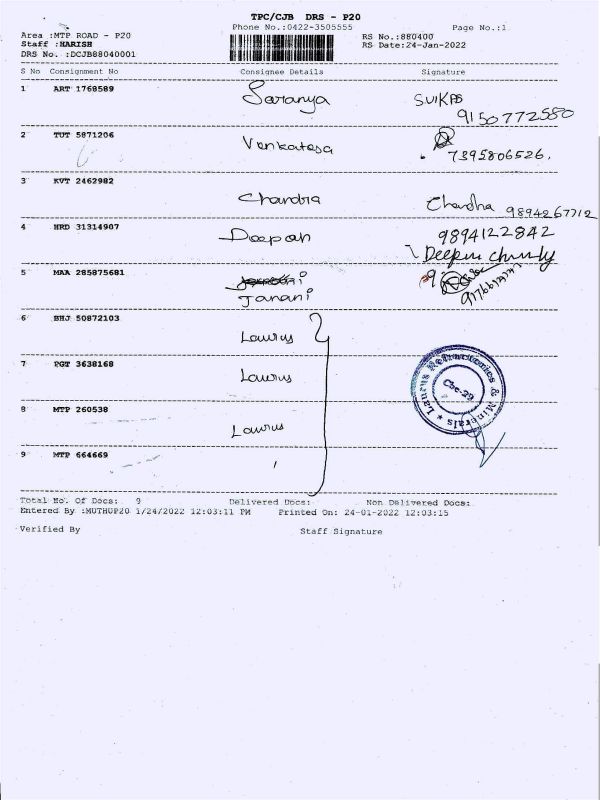 TPC/CJB DRS - P20
Phone No.:0422-3505555 Page No.:1
Area :MTP ROAD - P20 RS No.:880400
Staff :HARISH RS Date:24-Jan-2022
DRS No. :DCJB88040001
S No Consignment No Consignee Details Signature
1 ART 1768589 Saranya
9150772580
2 TUT 5871206 Venkatesa
7395806526.
3 KVT 2462982 Chandra Chandra 9894267712
4 HRD 31314907 Deepan 9894122842
Deepu
5 MAA 285875681
Janani
6 BHJ 50872103 Laurus
7 PGT 3638168 Laurus
Laurus Refractories & Minerals
Cbe-29
8 MTP 260538 Laurus
9 MTP 664669
Total No. Of Docs: 9 Delivered Docs: Non Delivered Docs:
Entered By :MUTHUP20 1/24/2022 12:03:11 PM Printed On: 24-01-2022 12:03:15
Verified By Staff Signature